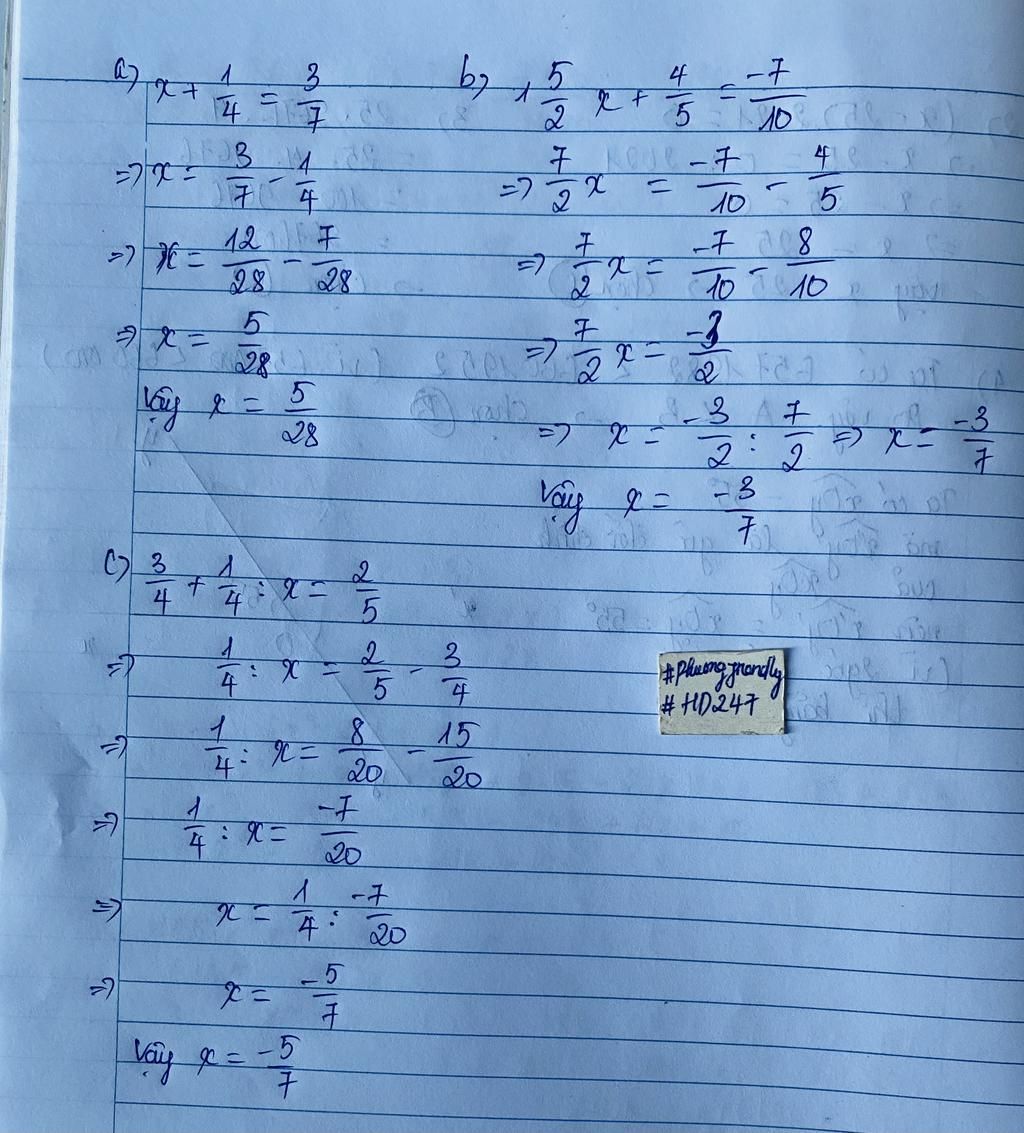 a) x + 1/4 = 3/7
=> x = 3/7 - 1/4
=> x = 12/28 - 7/28
=> x = 5/28
Vậy x = 5/28
b) 1 5/2 x + 4/5 = -7/10
=> 7/2 x = -7/10 - 4/5
=> 7/2 x = -7/10 - 8/10
=> 7/2 x = -3/2
=> x = -3/2 : 7/2 => x = -3/7
Vậy x = -3/7
c) 3/4 + 1/4 : x = 2/5
=> 1/4 : x = 2/5 - 3/4
=> 1/4 : x = 8/20 - 15/20
=> 1/4 : x = -7/20
=> x = 1/4 : -7/20
=> x = -5/7
Vậy x = -5/7
#HD247